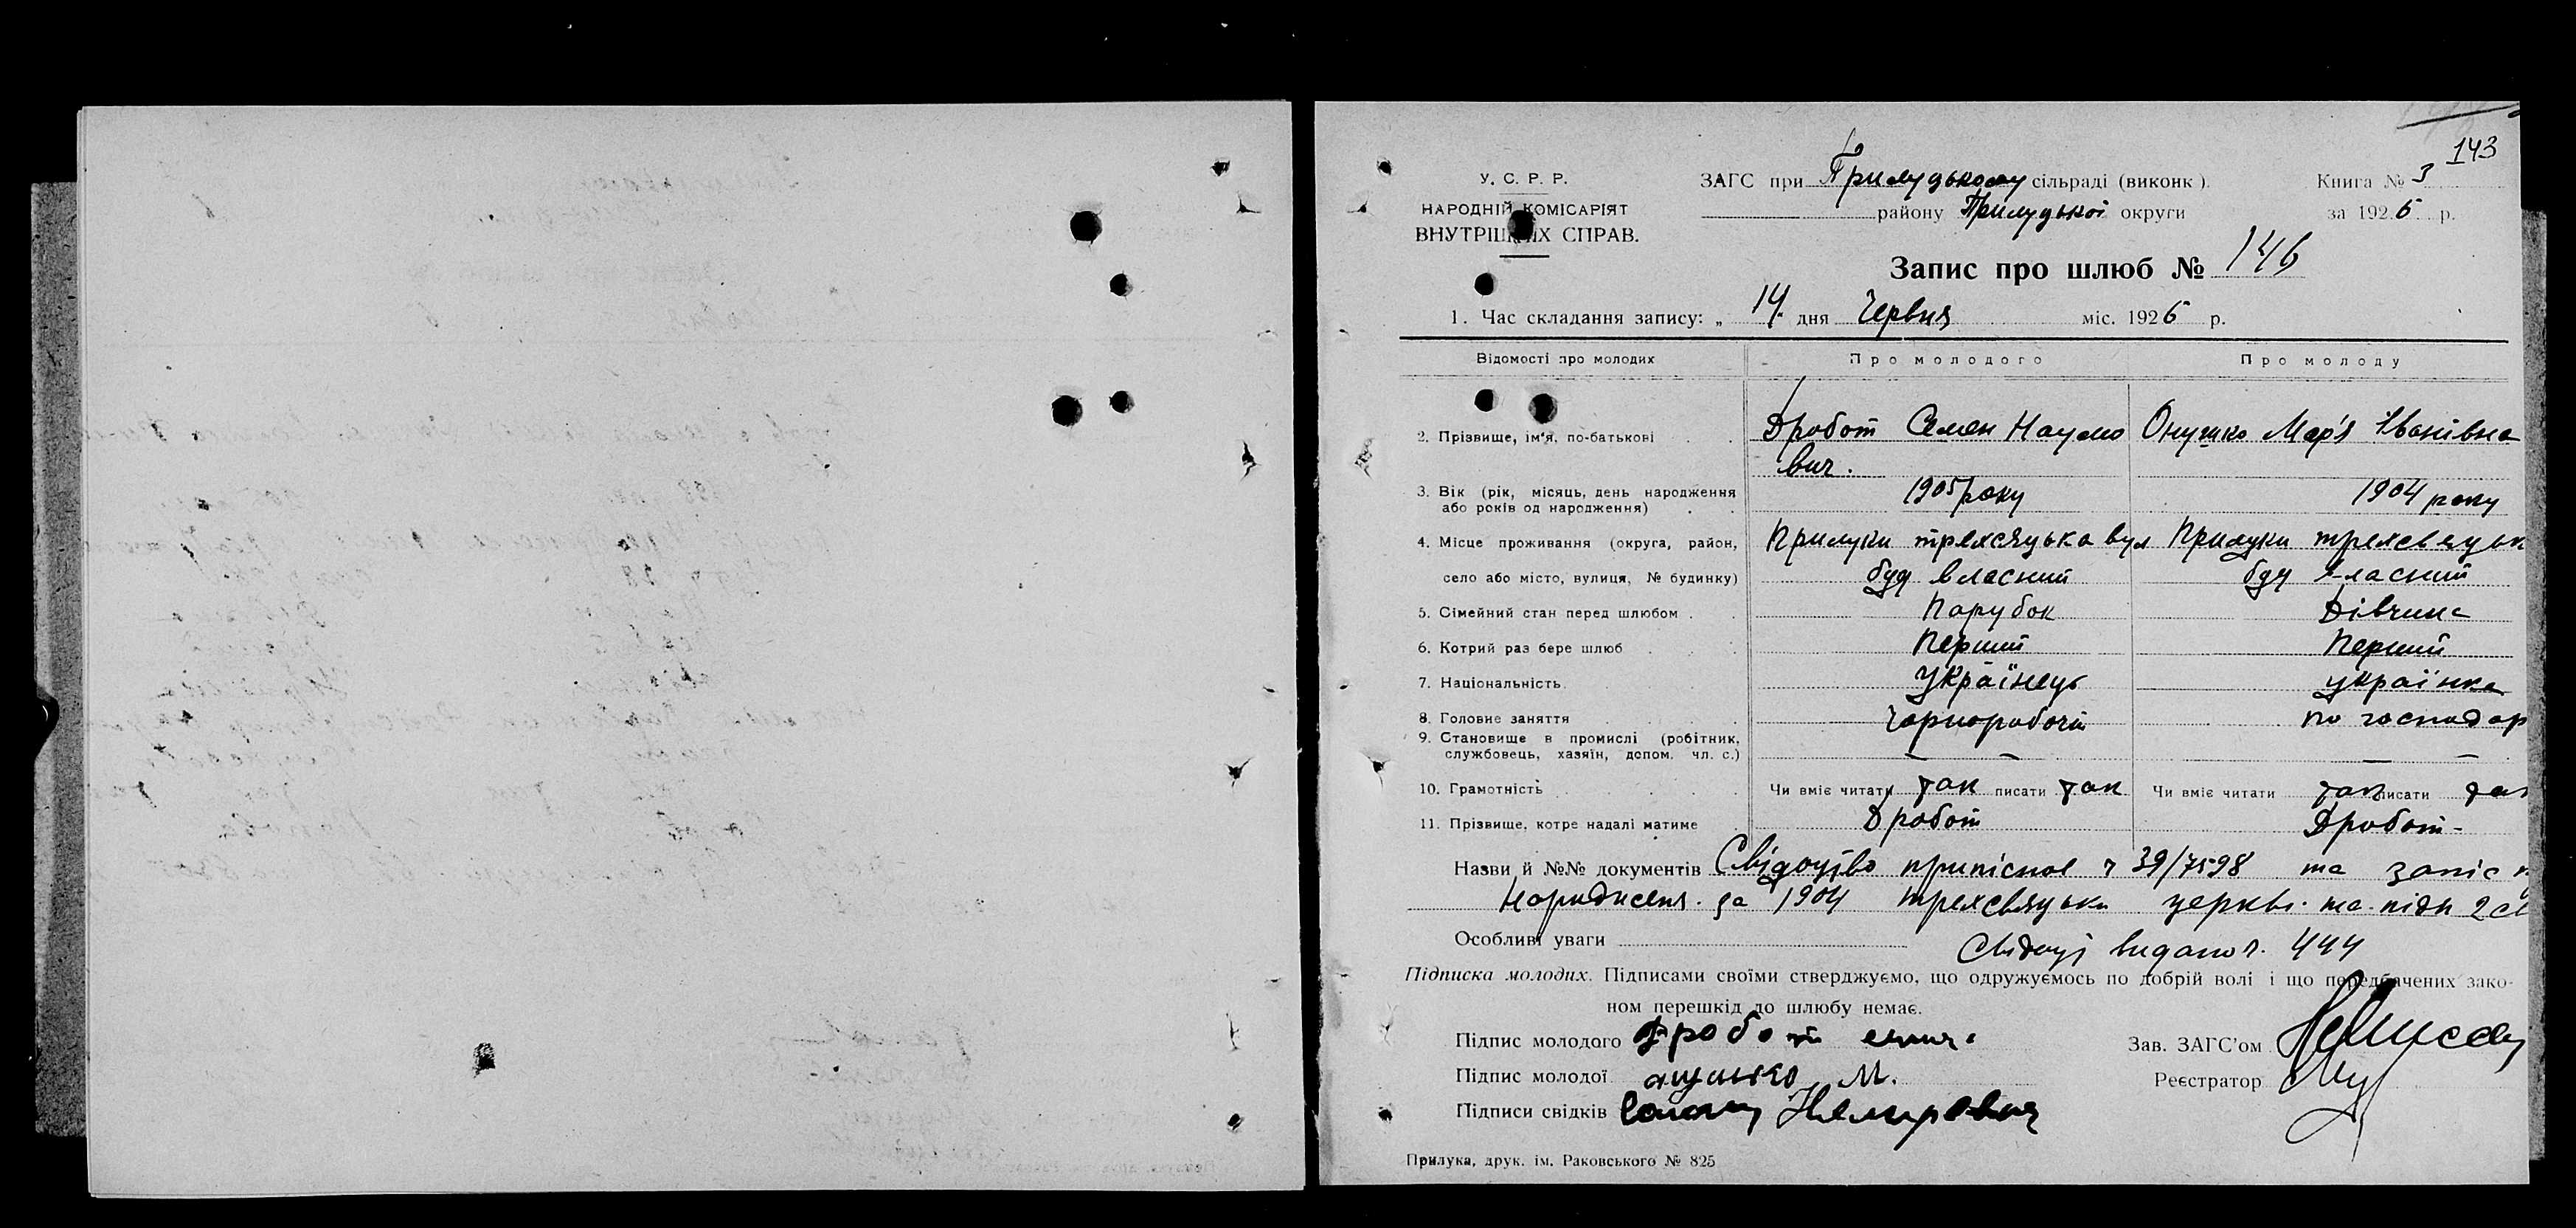 143
У. С. Р. Р.
НАРОДНІЙ КОМІСАРІЯТ
ВНУТРІШНІХ СПРАВ.
ЗАГС при Прилуцькому сільраді (виконк).
району Прилуцької округи
Книга № 3
за 1926 р.
Запис про шлюб № 146
1. Час складання запису: „ 14 " дня Червня міс. 1926 р.
Відомості про молодих Про молодого Про молоду
2. Прізвище, ім'я, по-батькові Дробот Семен Наумо Онушко Мар'я Іванівна
вич.
3. Вік (рік, місяць, день народження 1905 року 1904 року
або років од народження)
4. Місце проживання (округа, район, Прилуки трехсвяцька вул Прилуки трехсвяцьк
село або місто, вулиця, № будинку) буд власний буд власний
5. Сімейний стан перед шлюбом Парубок Дівчина
6. Котрий раз бере шлюб Перший Перший
7. Національність Українець українка
8. Головне заняття Чорноробочий по господар
9. Становище в промислі (робітник, — — — —
службовець, хазяїн, допом. чл. с.)
10. Грамотність Чи вміє читати так писати так Чи вміє читати так писати так
11. Прізвище, котре надалі матиме Дробот Дробот-
Назви й №№ документів Свідоцтво приписное ч 39/7598 та запіс
за 1904 трехсвяцьки церкві. та
Особливі уваги видано ч. 444
Підписка молодих. Підписами своїми стверджуємо, що одружуємось по добрій волі і що передбачених зако-
ном перешкід до шлюбу немає.
Підпис молодого Дробот
Підпис молодої М.
Підписи свідків
Зав. ЗАГС'ом
Реєстратор
Прилука, друк. ім. Раковського № 825